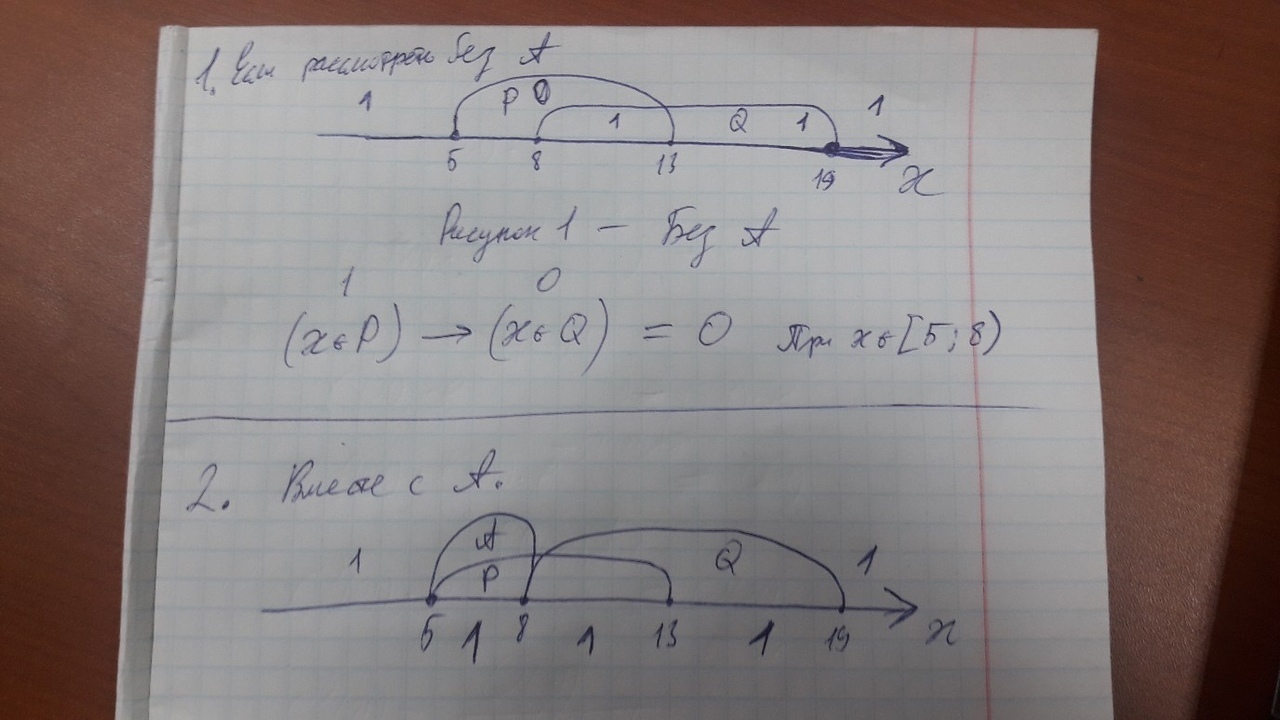 1. Если рассмотреть без A
1 P 0 1 Q 1 1
5 8 13 19 x
Рисунок 1 — Без A
1 0
(x ∈ P) → (x ∈ Q) = 0 При x ∈ [5; 8)
2. Вместе с A.
1 A P Q 1
5 1 8 1 13 1 19 x